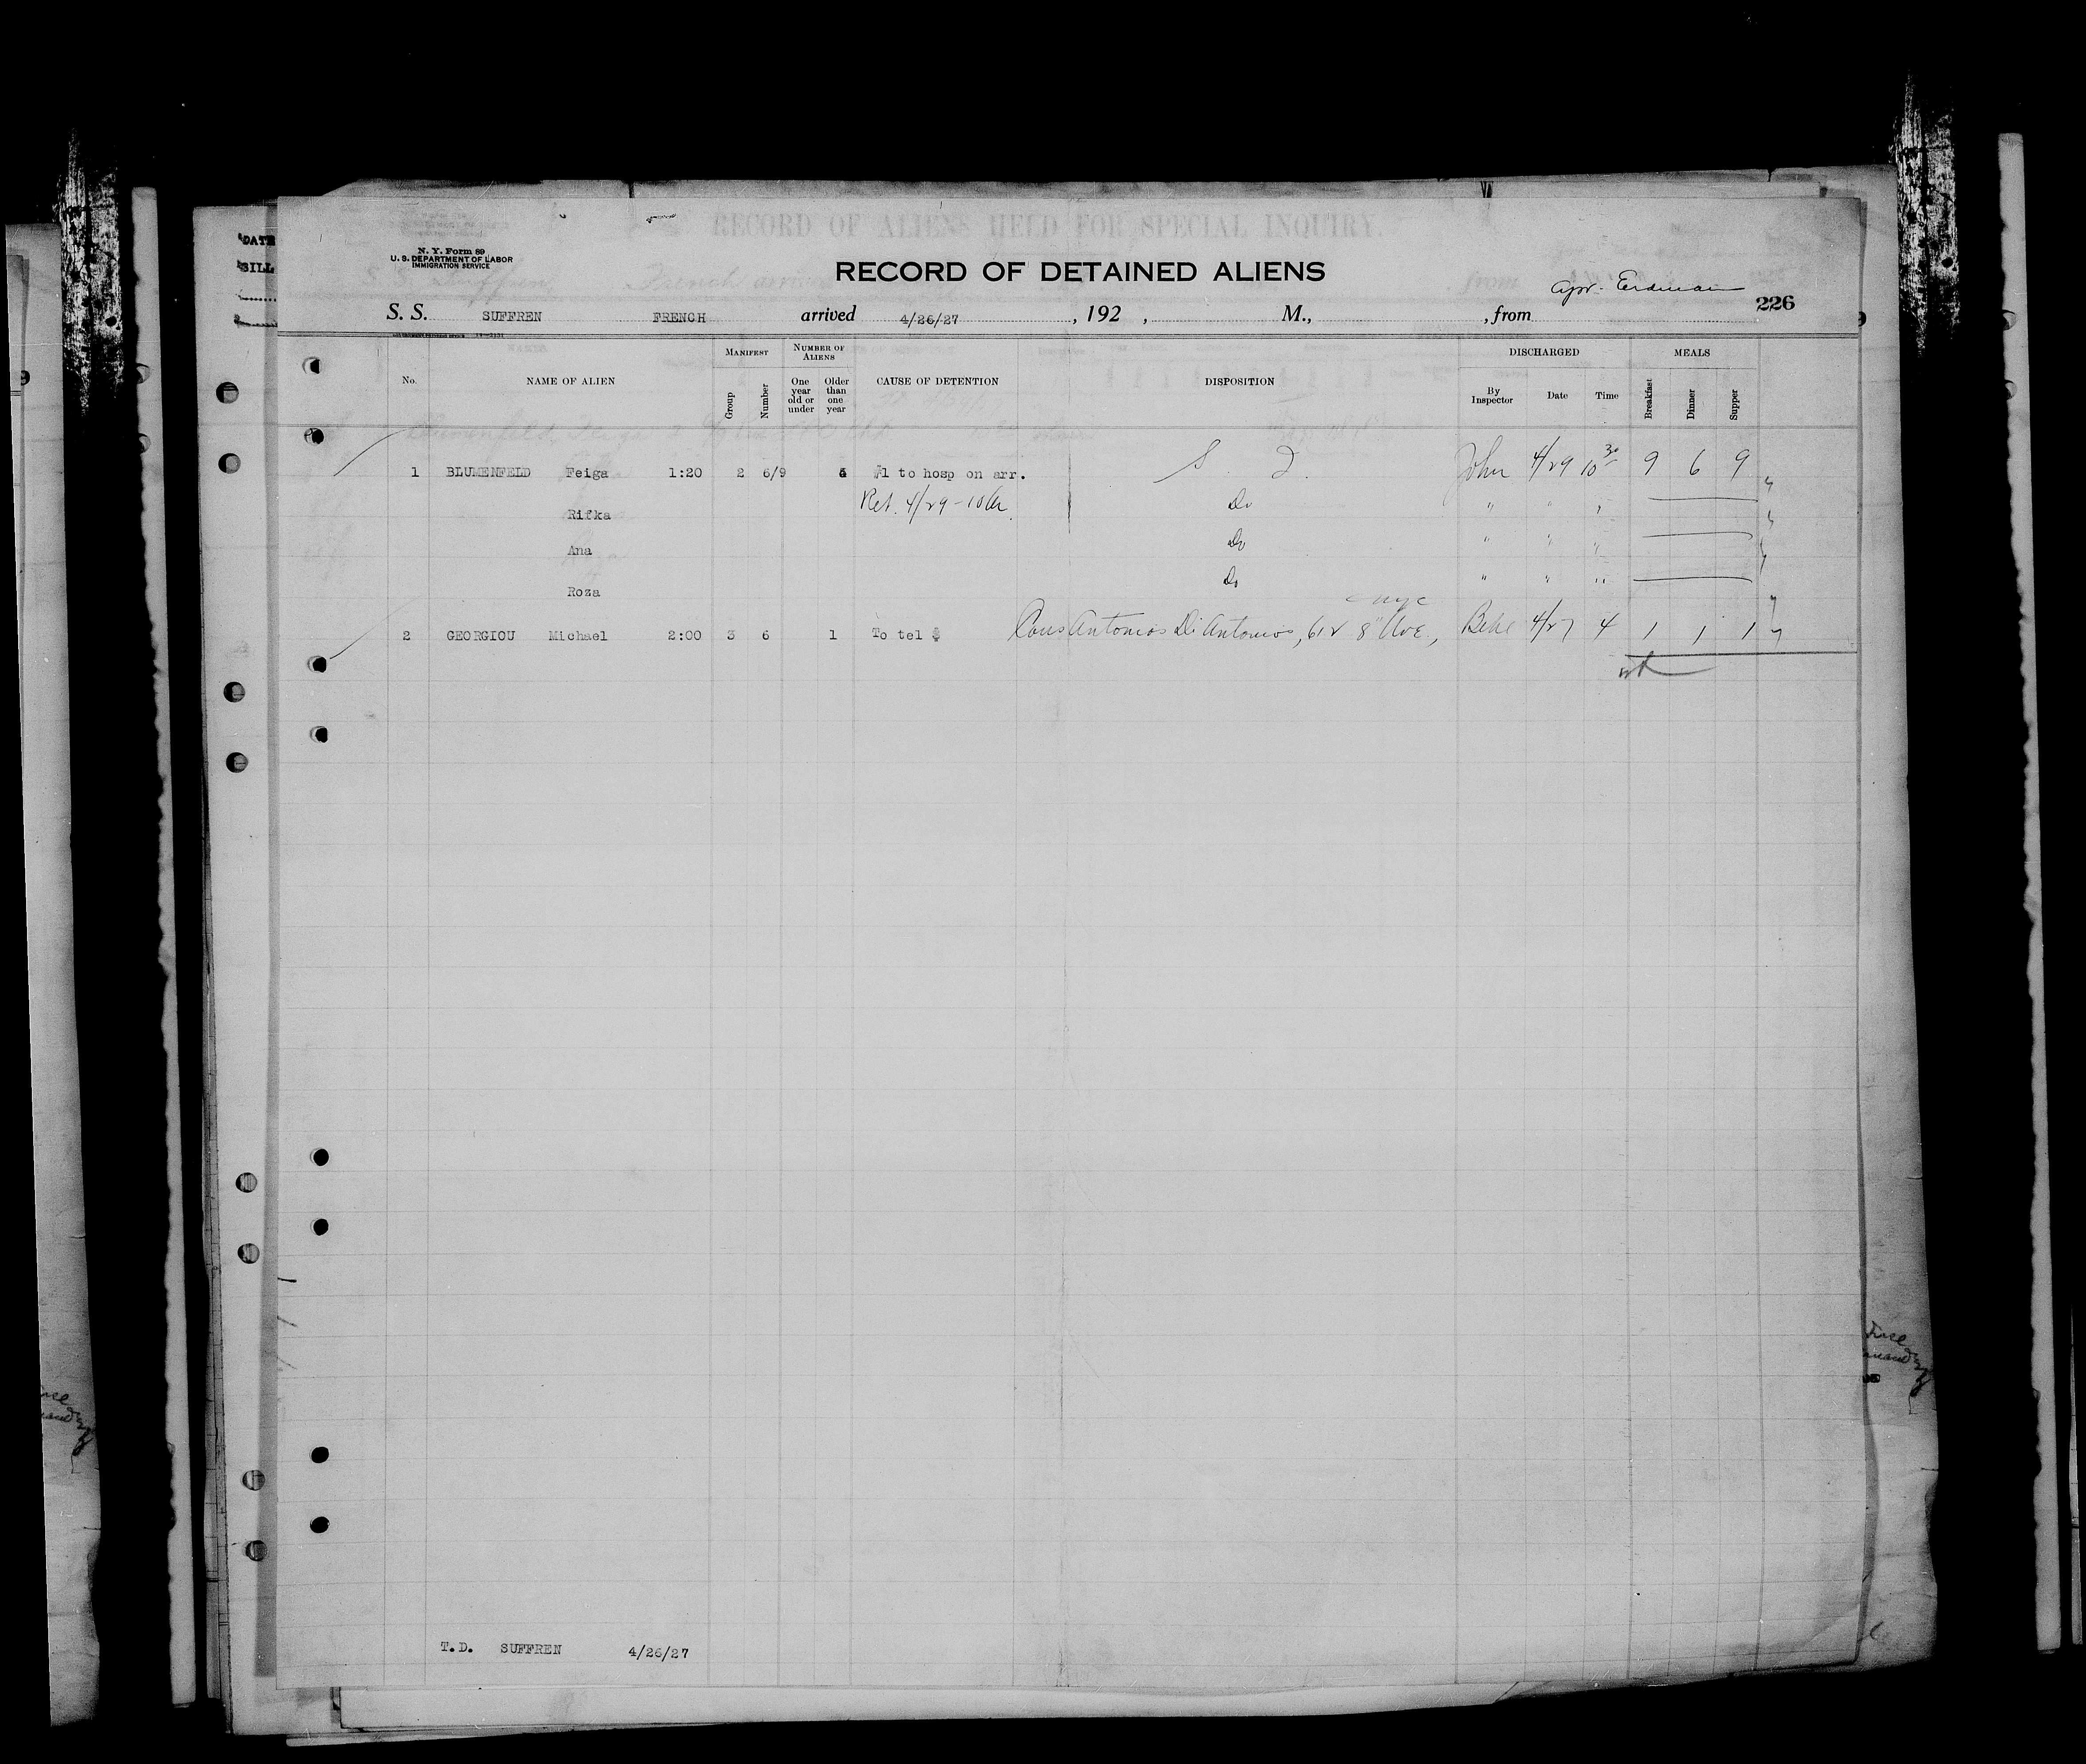 DATE
BILL
RECORD OF ALIENS HELD FOR SPECIAL INQUIRY.
N. Y. Form 89
U. S. DEPARTMENT OF LABOR
IMMIGRATION SERVICE
RECORD OF DETAINED ALIENS
Erdman
S. S. SUFFREN FRENCH arrived 4/26/27, 192 , M., , from 226
No. NAME OF ALIEN MANIFEST Group Number NUMBER OF ALIENS One year old or under Older than one year CAUSE OF DETENTION DISPOSITION DISCHARGED By Inspector Date Time MEALS Breakfast Dinner Supper
1 BLUMENFELD Feiga 1:20 2 6/9 4 #1 to hosp on arr. S. I. John 4/29 10 30 9 6 9
Rifka Ret. 4/29 - 10 A. Do " " "
Ana Do " " "
Roza Do " " "
NYC
2 GEORGIOU Michael 2:00 3 6 1 To tel $ Cous Antonios Di Antonios, 612 8" Ave., 4/27 4 1 1 1
T.D. SUFFREN 4/26/27